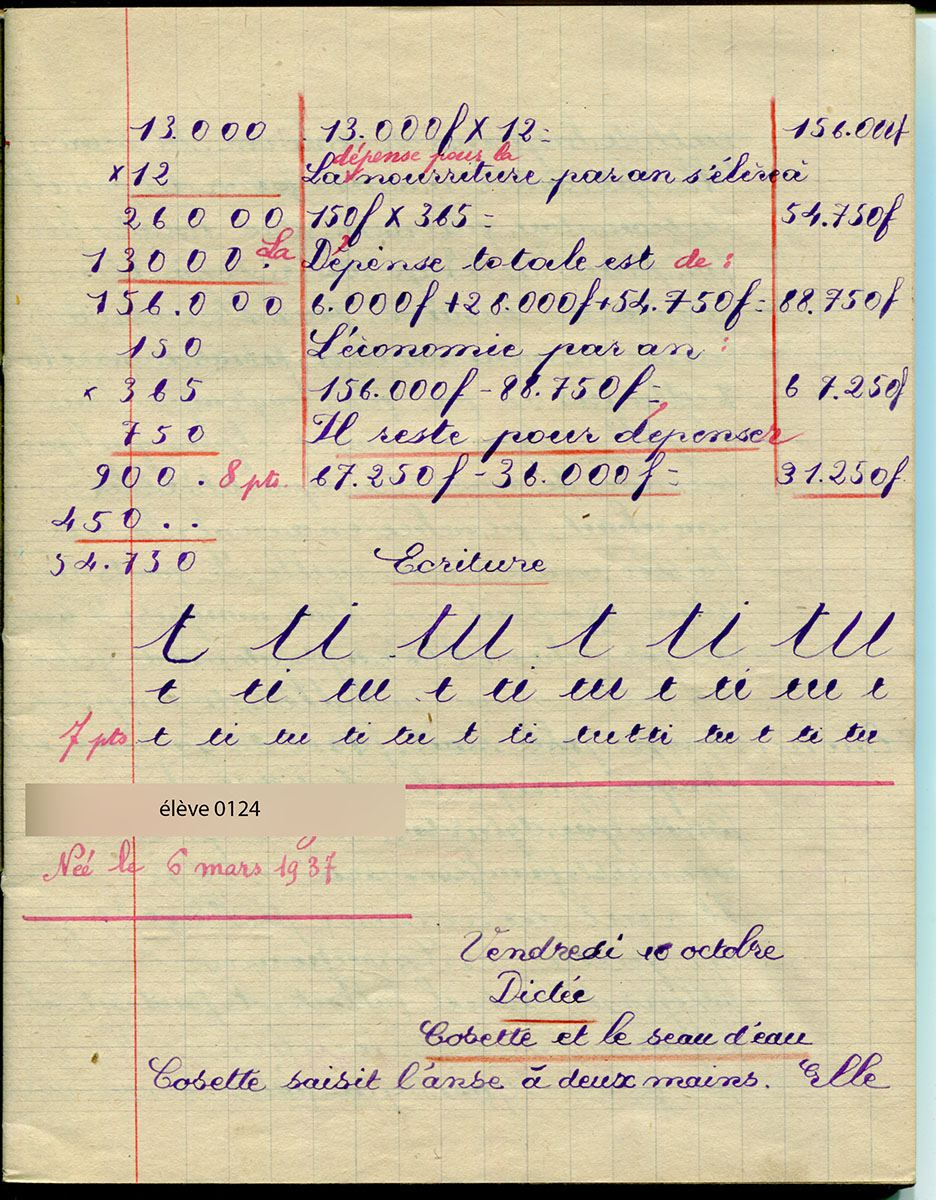 13.000 13.000f X 12 = 156.000f
dépense pour la
x 12 La nourriture par an s'élève à
26 0 00 150f X 365 = 54.750f
13000. La Dépense totale est de :
156.000 6.000f + 28.000f + 54.750f = 88.750f
150 L'économie par an :
x 365 156.000f - 88.750f = 67.250f
750 Il reste pour dépenser
900 . 8 pts. 67.250f - 36.000f = 31.250f
450 . .
54.750 Ecriture
t ti tu t ti tu
t ti tu t ti tu t ti tu t
7 pts t ti tu ti tu t ti tu t ti tu t ti tu
élève 0124
Née le 6 mars 1937
Vendredi 10 octobre
Dictée
Cosette et le seau d'eau
Cosette saisit l'anse à deux mains. Elle